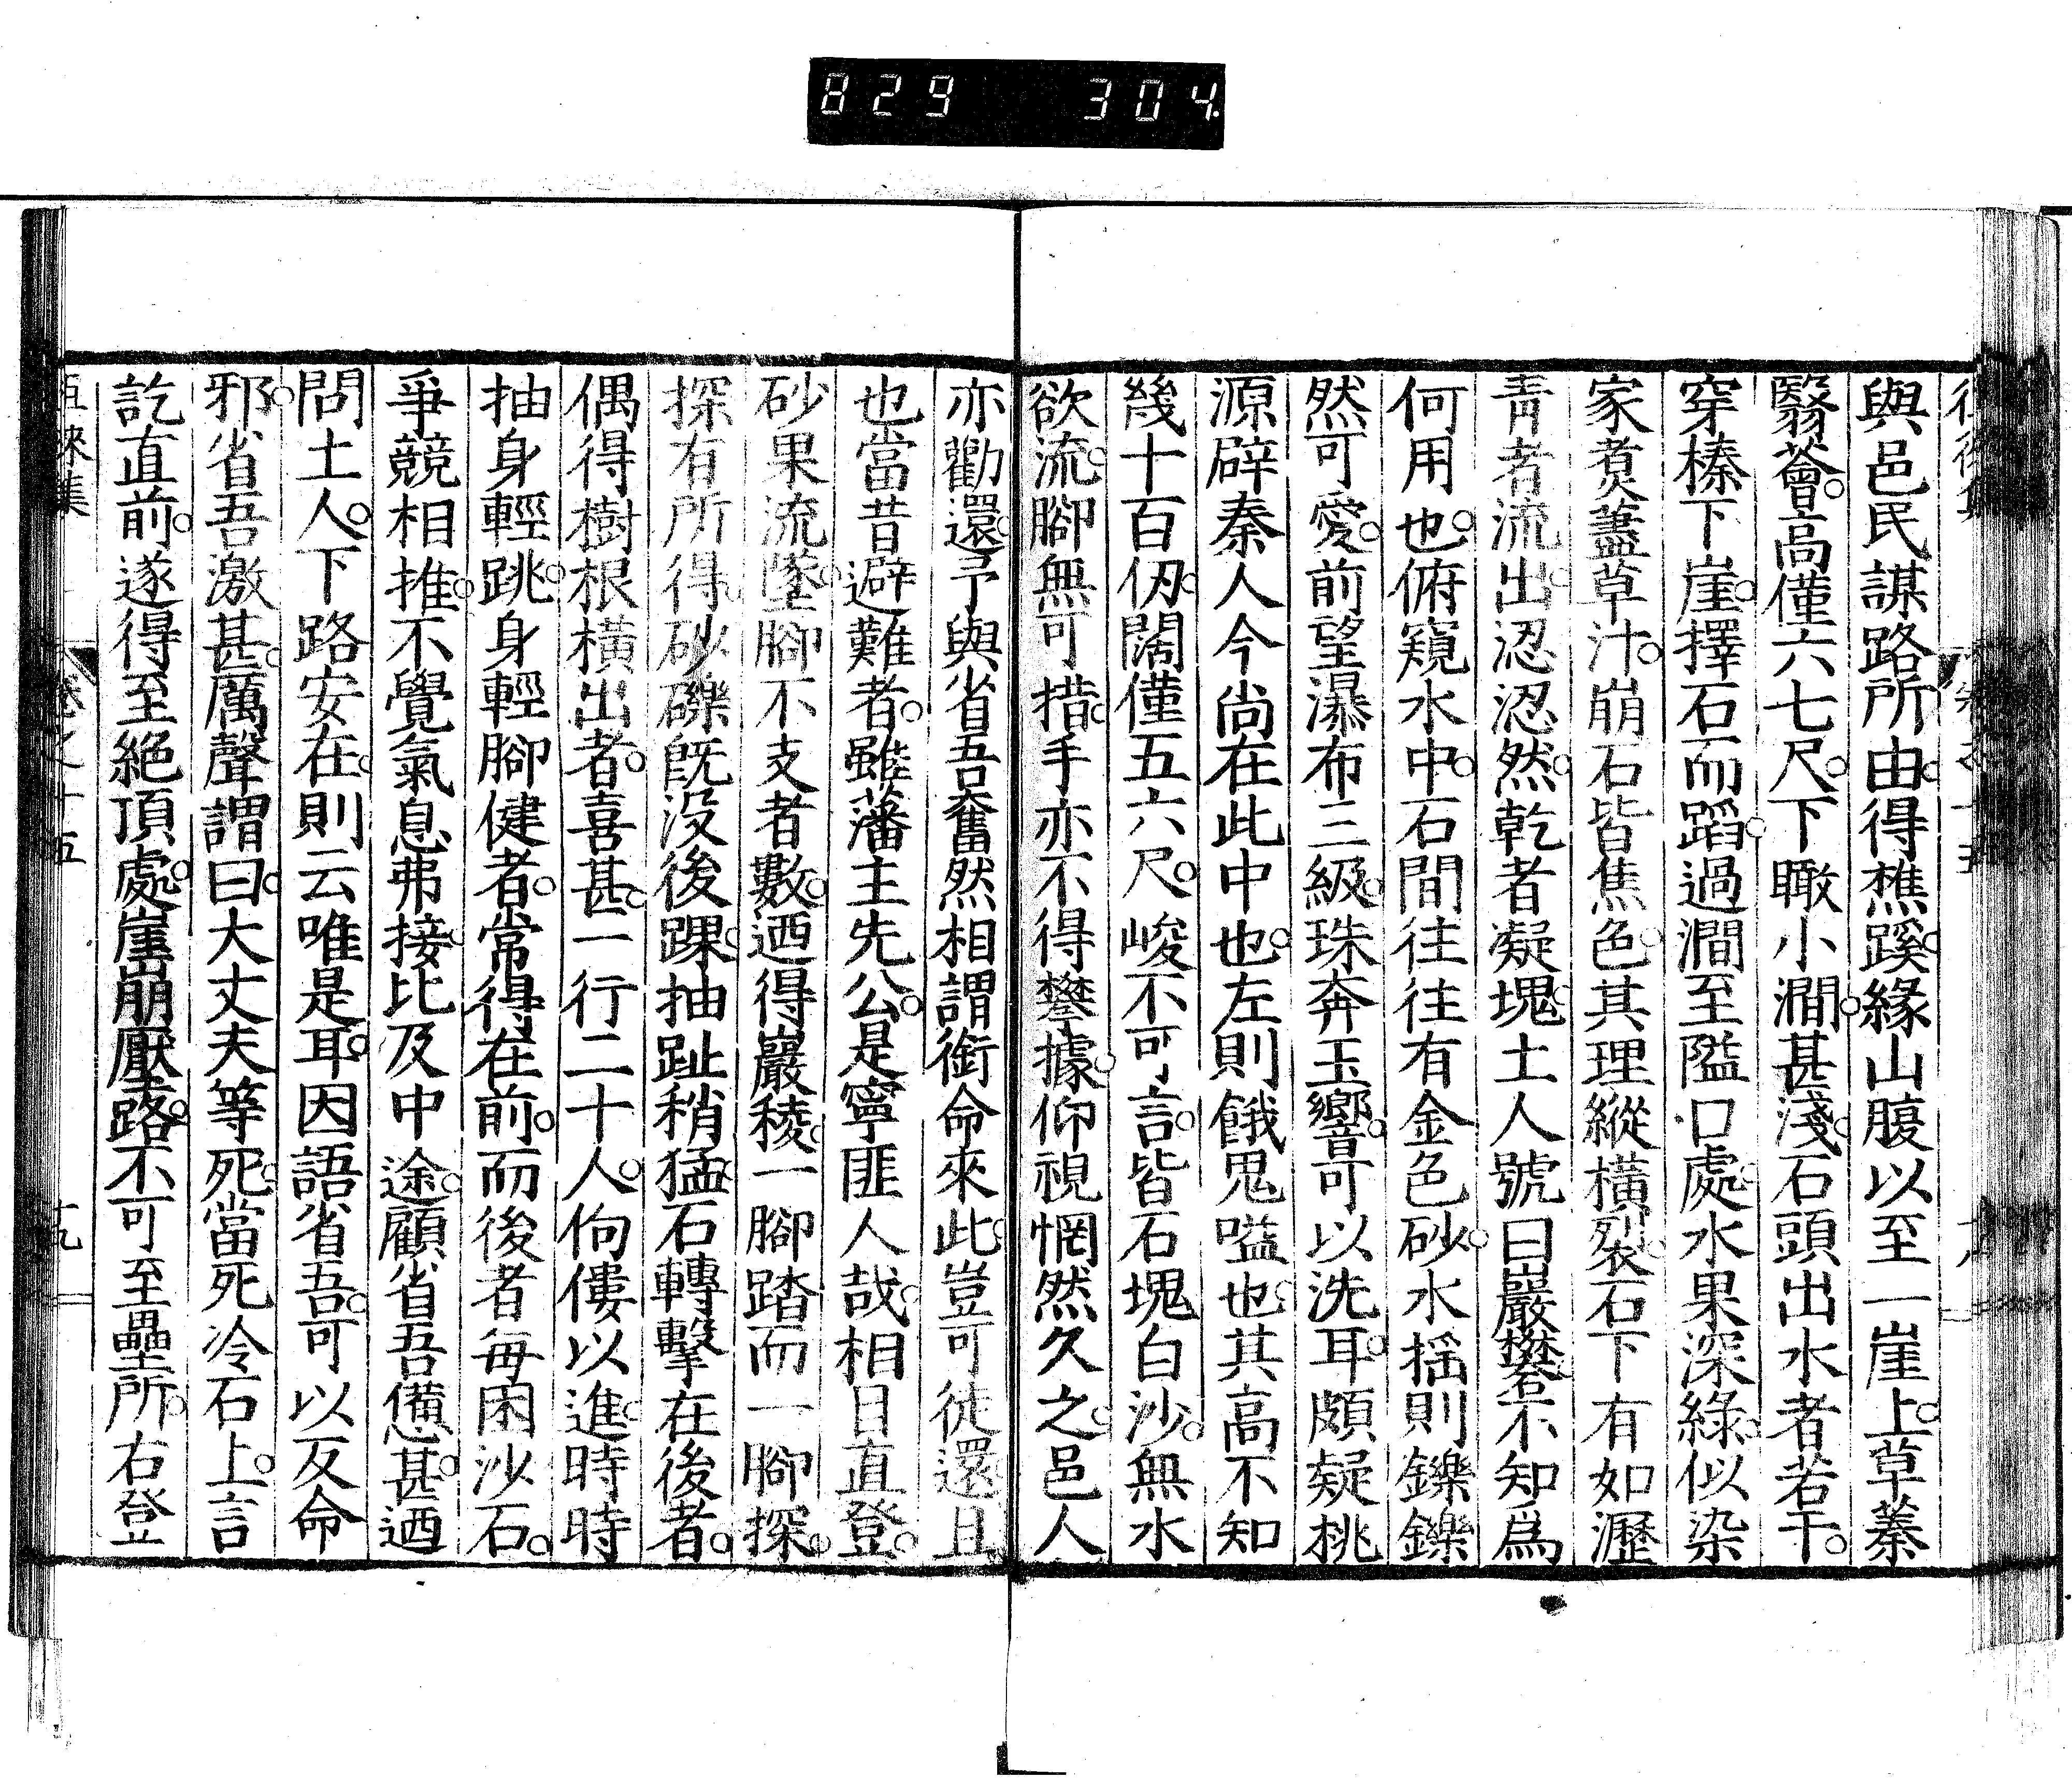 829 304.
與邑民謀路所由。得樵蹊。緣山腹以至一崖上。草蓁
翳薈。高僅六七尺。下瞰小澗。甚淺。石頭出水者若干。
穿榛下崖。擇石而蹈。過澗至隘口處。水果深綠。似染
家煑藎草汁。崩石皆焦色。其理縱橫裂。石下有如瀝
青者流出。涊涊然。乾者凝塊。土人號曰巖礬。不知爲
何用也。俯窺水中。石間往往有金色砂。水揺則鑠鑠
然可愛。前望瀑布三級。珠奔玉響。可以洗耳。頗疑桃
源辟秦人今尚在此中也。左則餓鬼嗌也。其高不知
幾十百仞。闊僅五六尺。峻不可言。皆石塊白沙。無水
欲流。腳無可措。手亦不得攀據。仰視惘然久之。邑人
亦勸還。予與省吾奮然相謂銜命來此。豈可徒還。且
也當昔避難者。雖藩主先公。是寧匪人哉。相目直登。
砂果流墜。腳不支者數。迺得巖稜。一腳踏而一腳探。
探有所得。砂礫既没後踝。抽趾稍猛。石轉擊在後者。
偶得樹根橫出者。喜甚。一行二十人。佝僂以進。時時
抽身輕跳。身輕腳健者。常得在前。而後者每困沙石。
爭競相推。不覺氣息弗接。比及中途。顧省吾備甚。迺
問土人。下路安在。則云唯是耳。因語省吾。可以反命
邪。省吾激甚。厲聲謂曰。大丈夫等死。當死冷石上。言
訖直前。遂得至絕頂處。崖崩壓路。不可至壘所。右登
徠集 卷之十五 十九